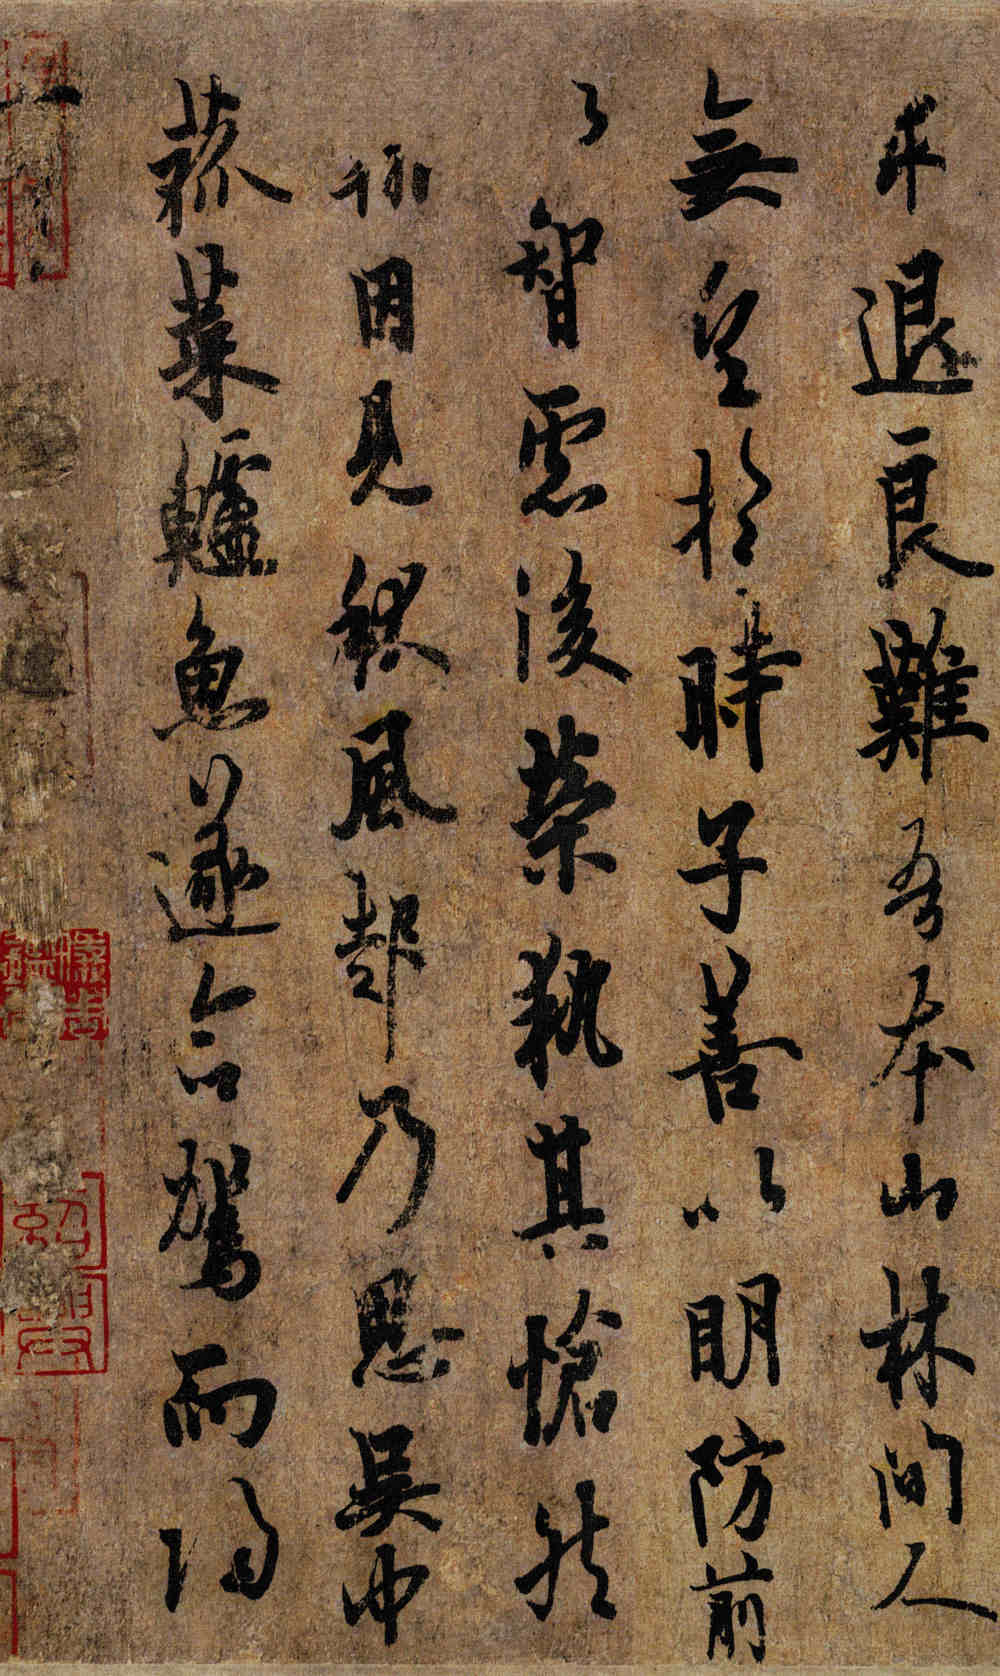 求退良難吾本山林間人
無望於時子善以明防前
以智慮後榮執其愴然
翰因見秋風起乃思吳中
菰菜鱸魚遂命駕而歸
紹興